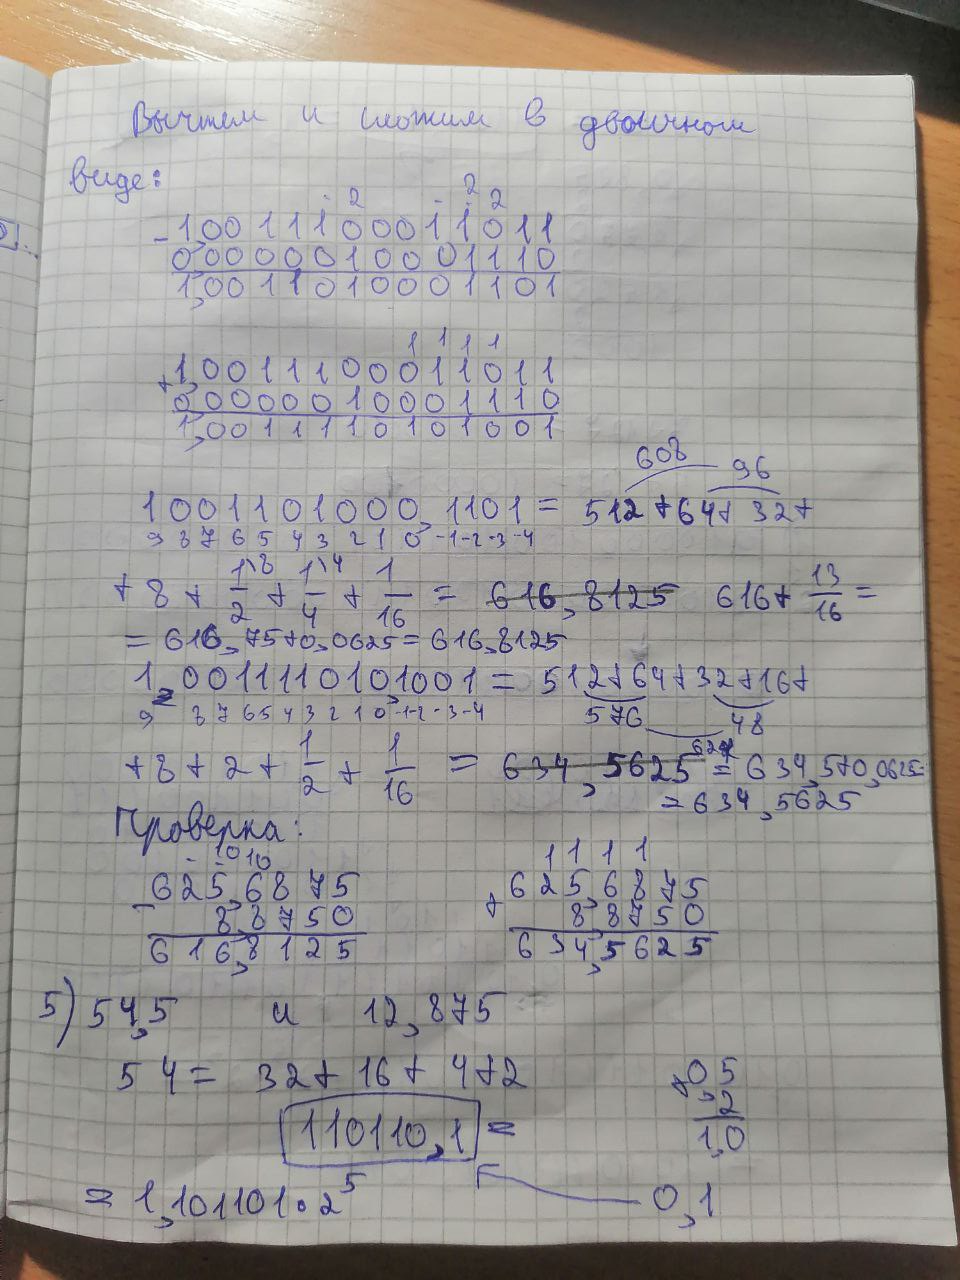 Вычтем и сложим в двоичном
виде:
2 2 2
- 1,0011100011011
0,0000010001110
1,0011010001101
1 1 1 1
+ 1,0011100011011
0,0000010001110
1,0011110101001
608 96
1001101000,1101 = 512+64+32+
9 8 7 6 5 4 3 2 1 0 -1 -2 -3 -4
+8+ 1\8/2 + 1\4/4 + 1/16 = 616,8125 616+ 13/16 =
= 616,75+0,0625 = 616,8125
1,0011110101001 = 512+64+32+16+
9 8 7 6 5 4 3 2 1 0 -1 -2 -3 -4 576 48
+8+2+ 1/2 + 1/16 = 634,5625 = 634,5+0,0625=
= 634,5625
Проверка:
10 10
- 625,6875
8,8750
616,8125
1 1 1 1
+ 625,6875
8,8750
634,5625
5) 54,5 и 12,875
54 = 32+16+4+2
110110,1 =
0 5
,2
1,0
= 1,101101·2^5
0,1